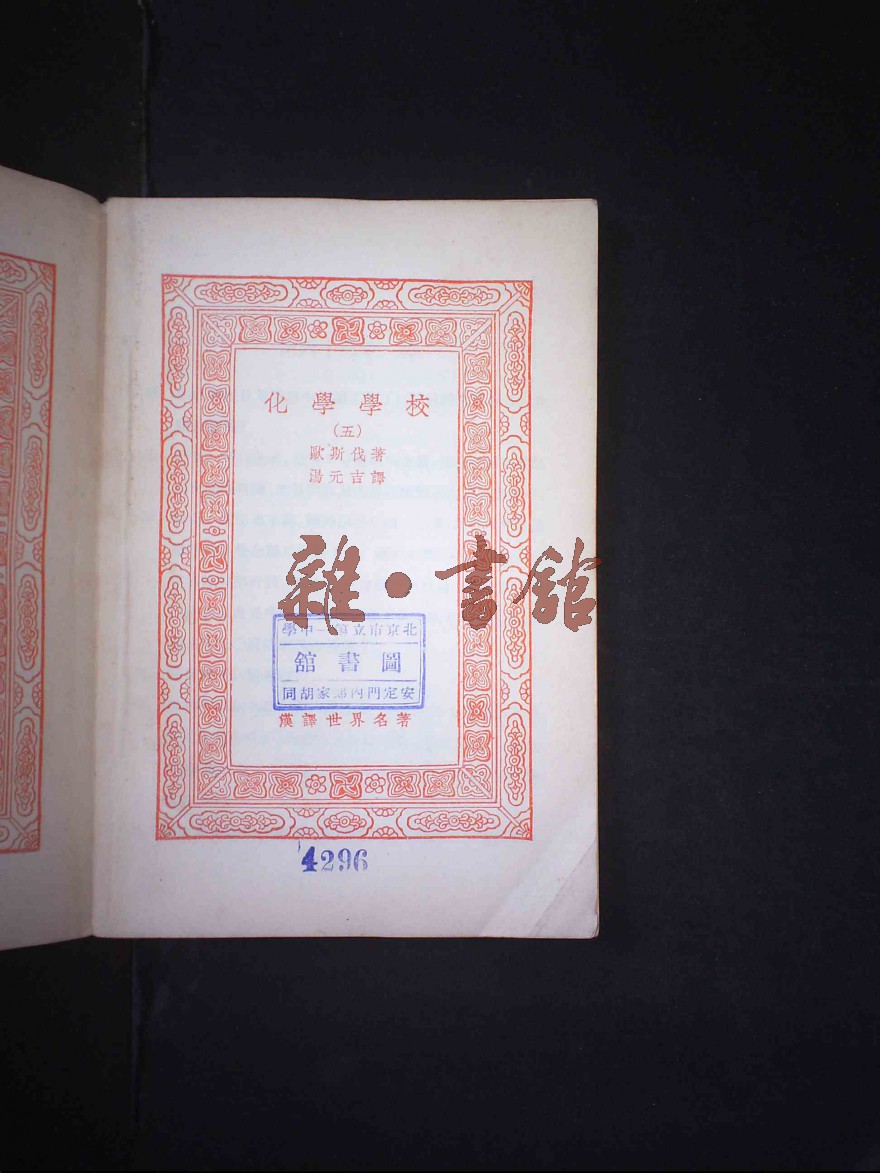 化學學校
(五)
歐斯伐著
湯元吉譯
雜·書館
北京市立第一中學
圖書館
安定門內郎家胡同
漢譯世界名著
4296